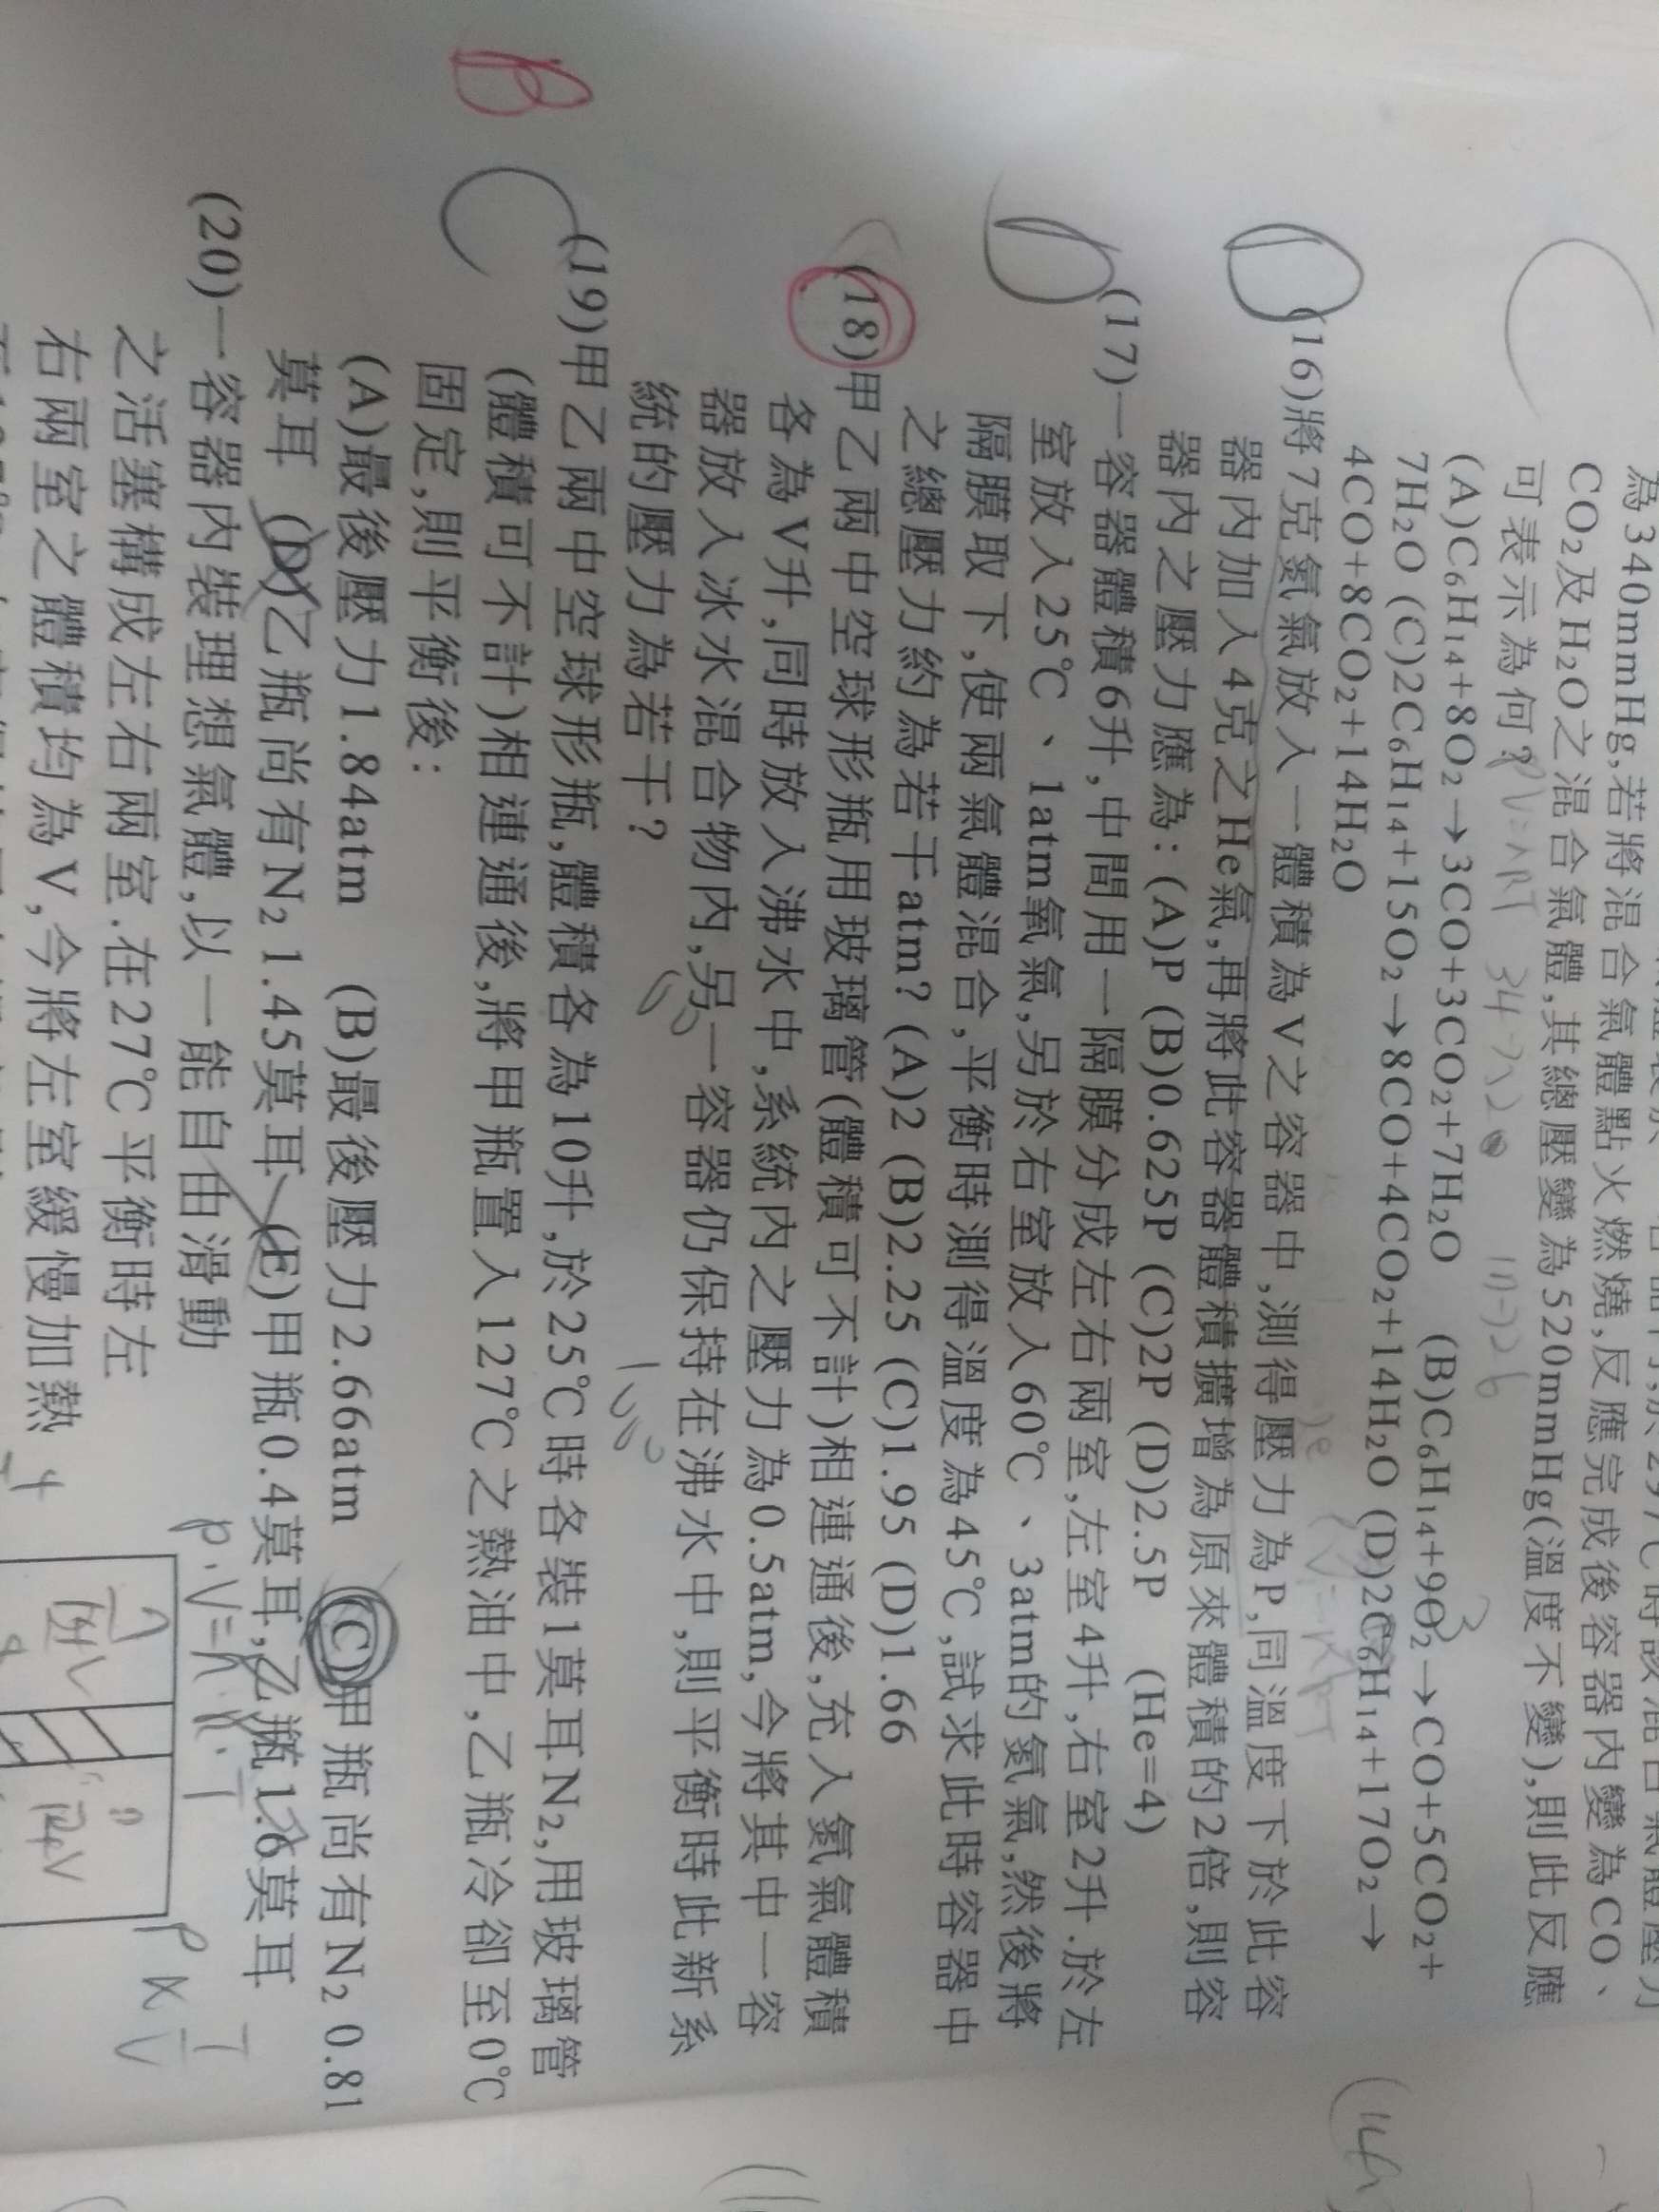 為340mmHg,若將混合氣體點火燃燒,反應完成後容器內變為CO、
CO₂及H₂O之混合氣體,其總壓變為520mmHg(溫度不變),則此反應
可表示為何?
(A)C₆H₁₄+8O₂→3CO+3CO₂+7H₂O (B)C₆H₁₄+9O₂→CO+5CO₂+
7H₂O (C)2C₆H₁₄+15O₂→8CO+4CO₂+14H₂O (D)2C₆H₁₄+17O₂→
4CO+8CO₂+14H₂O
(16)將7克氦氣放入一體積為V之容器中,測得壓力為P,同溫度下於此容
器內加入4克之He氣,再將此容器體積擴增為原來體積的2倍,則容
器內之壓力應為:(A)P (B)0.625P (C)2P (D)2.5P (He=4)
(17)一容器體積6升,中間用一隔膜分成左右兩室,左室4升,右室2升.於左
室放入25℃、1atm氧氣,另於右室放入60℃、3atm的氮氣,然後將
隔膜取下,使兩氣體混合,平衡時測得溫度為45℃,試求此時容器中
之總壓力約為若干atm? (A)2 (B)2.25 (C)1.95 (D)1.66
(18)甲乙兩中空球形瓶用玻璃管(體積可不計)相連通後,充入氮氣體積
各為V升,同時放入沸水中,系統內之壓力為0.5atm,今將其中一容
器放入冰水混合物內,另一容器仍保持在沸水中,則平衡時此新系
統的壓力為若干?
B
C
(19)甲乙兩中空球形瓶,體積各為10升,於25℃時各裝1莫耳N₂,用玻璃管
(體積可不計)相連通後,將甲瓶置入127℃之熱油中,乙瓶冷卻至0℃
固定,則平衡後:
(A)最後壓力1.84atm (B)最後壓力2.66atm (C)甲瓶尚有N₂ 0.81
莫耳 (D)乙瓶尚有N₂ 1.45莫耳 (E)甲瓶0.4莫耳,乙瓶1.6莫耳
P·V=n·R·T
(20)一容器內裝理想氣體,以一能自由滑動
之活塞構成左右兩室.在27℃平衡時左
右兩室之體積均為V,今將左室緩慢加熱
(14)